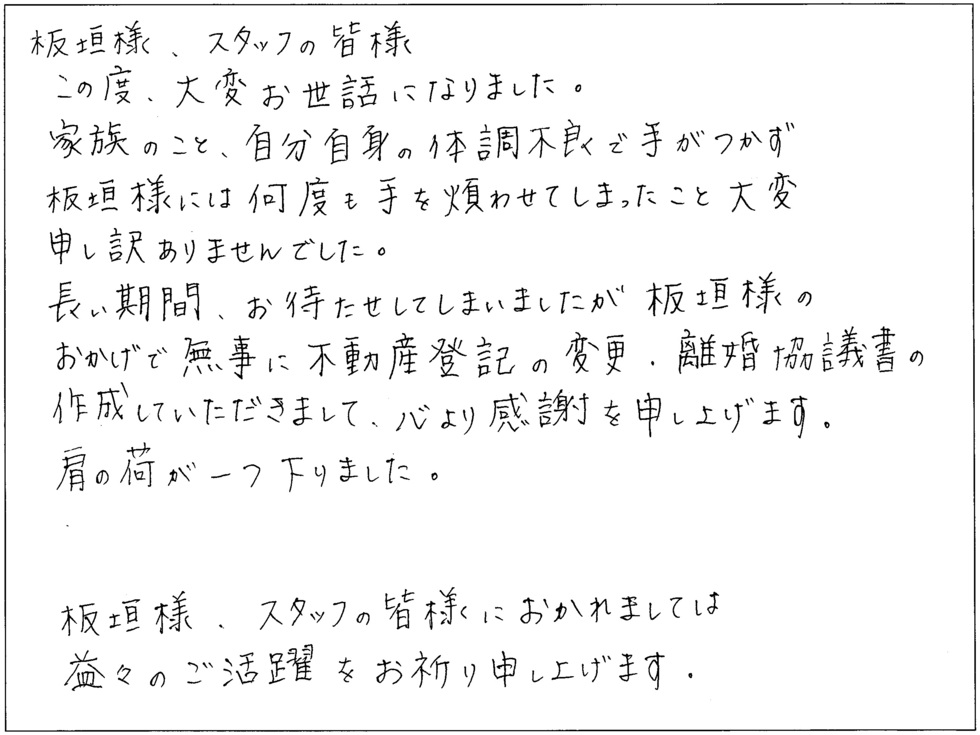 板垣様、スタッフの皆様
この度、大変お世話になりました。
家族のこと、自分自身の体調不良で手がつかず
板垣様には何度も手を煩わせてしまったこと大変
申し訳ありませんでした。
長い期間、お待たせしてしまいましたが板垣様の
おかげで無事に不動産登記の変更・離婚協議書の
作成していただきまして、心より感謝を申し上げます。
肩の荷が一つ下りました。
板垣様、スタッフの皆様におかれましては
益々のご活躍をお祈り申し上げます。